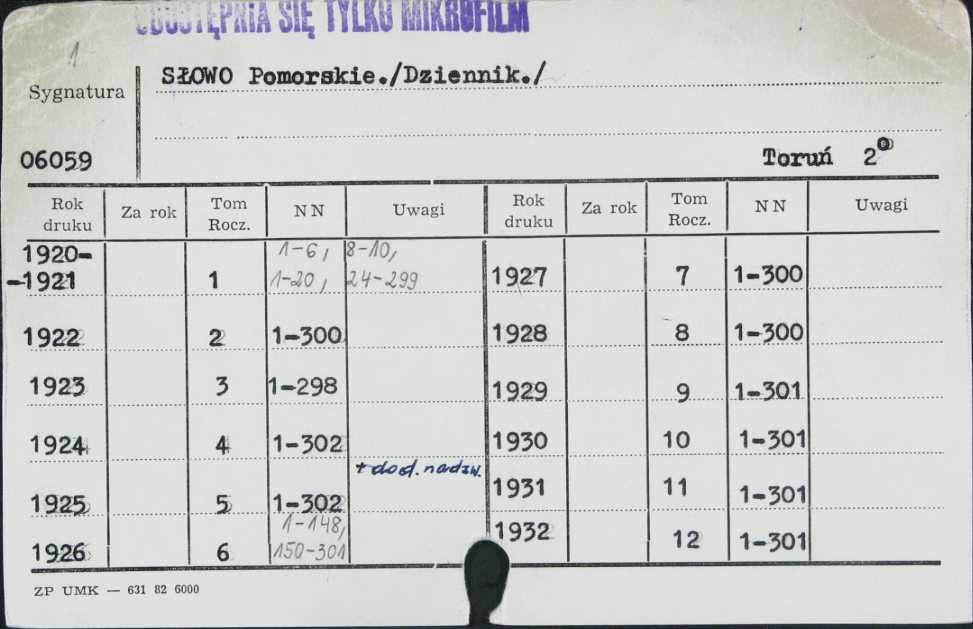 UDOSTĘPNIA SIĘ TYLKO MIKROFILM
1
SŁOWO Pomorskie./Dziennik./
Sygnatura
06059
Toruń 2°
Rok druku Za rok Tom Rocz. NN Uwagi Rok druku Za rok Tom Rocz. NN Uwagi
1920- 1-6, 8-10,
-1921 1 1-20, 24-299 1927 7 1-300
1922 2 1-300 1928 8 1-300
1923 3 1-298 1929 9 1-301
1924 4 1-302 1930 10 1-301
+ dod. nadzw.
1925 5 1-302 1931 11 1-301
1-148,
1926 6 150-301 1932 12 1-301
ZP UMK — 631 82 6000